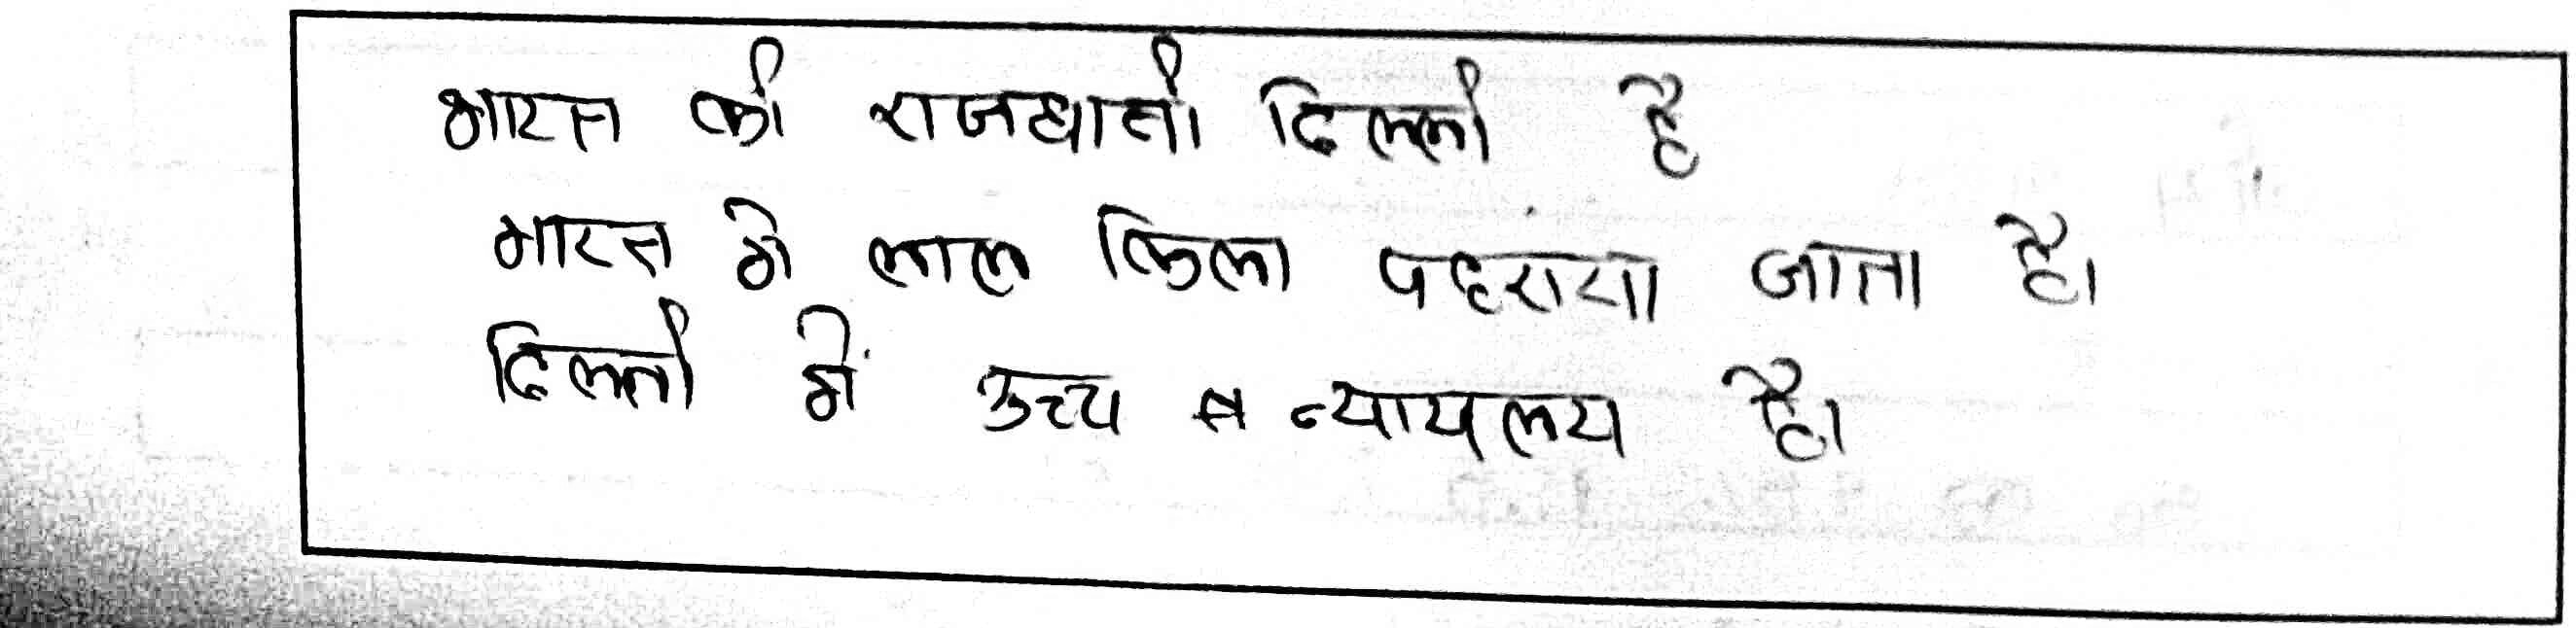 भारत की राजधानी दिल्ली है
भारत मे लाल किला पहराया जाता है।
दिल्ली में उच्च न्यायलय है।